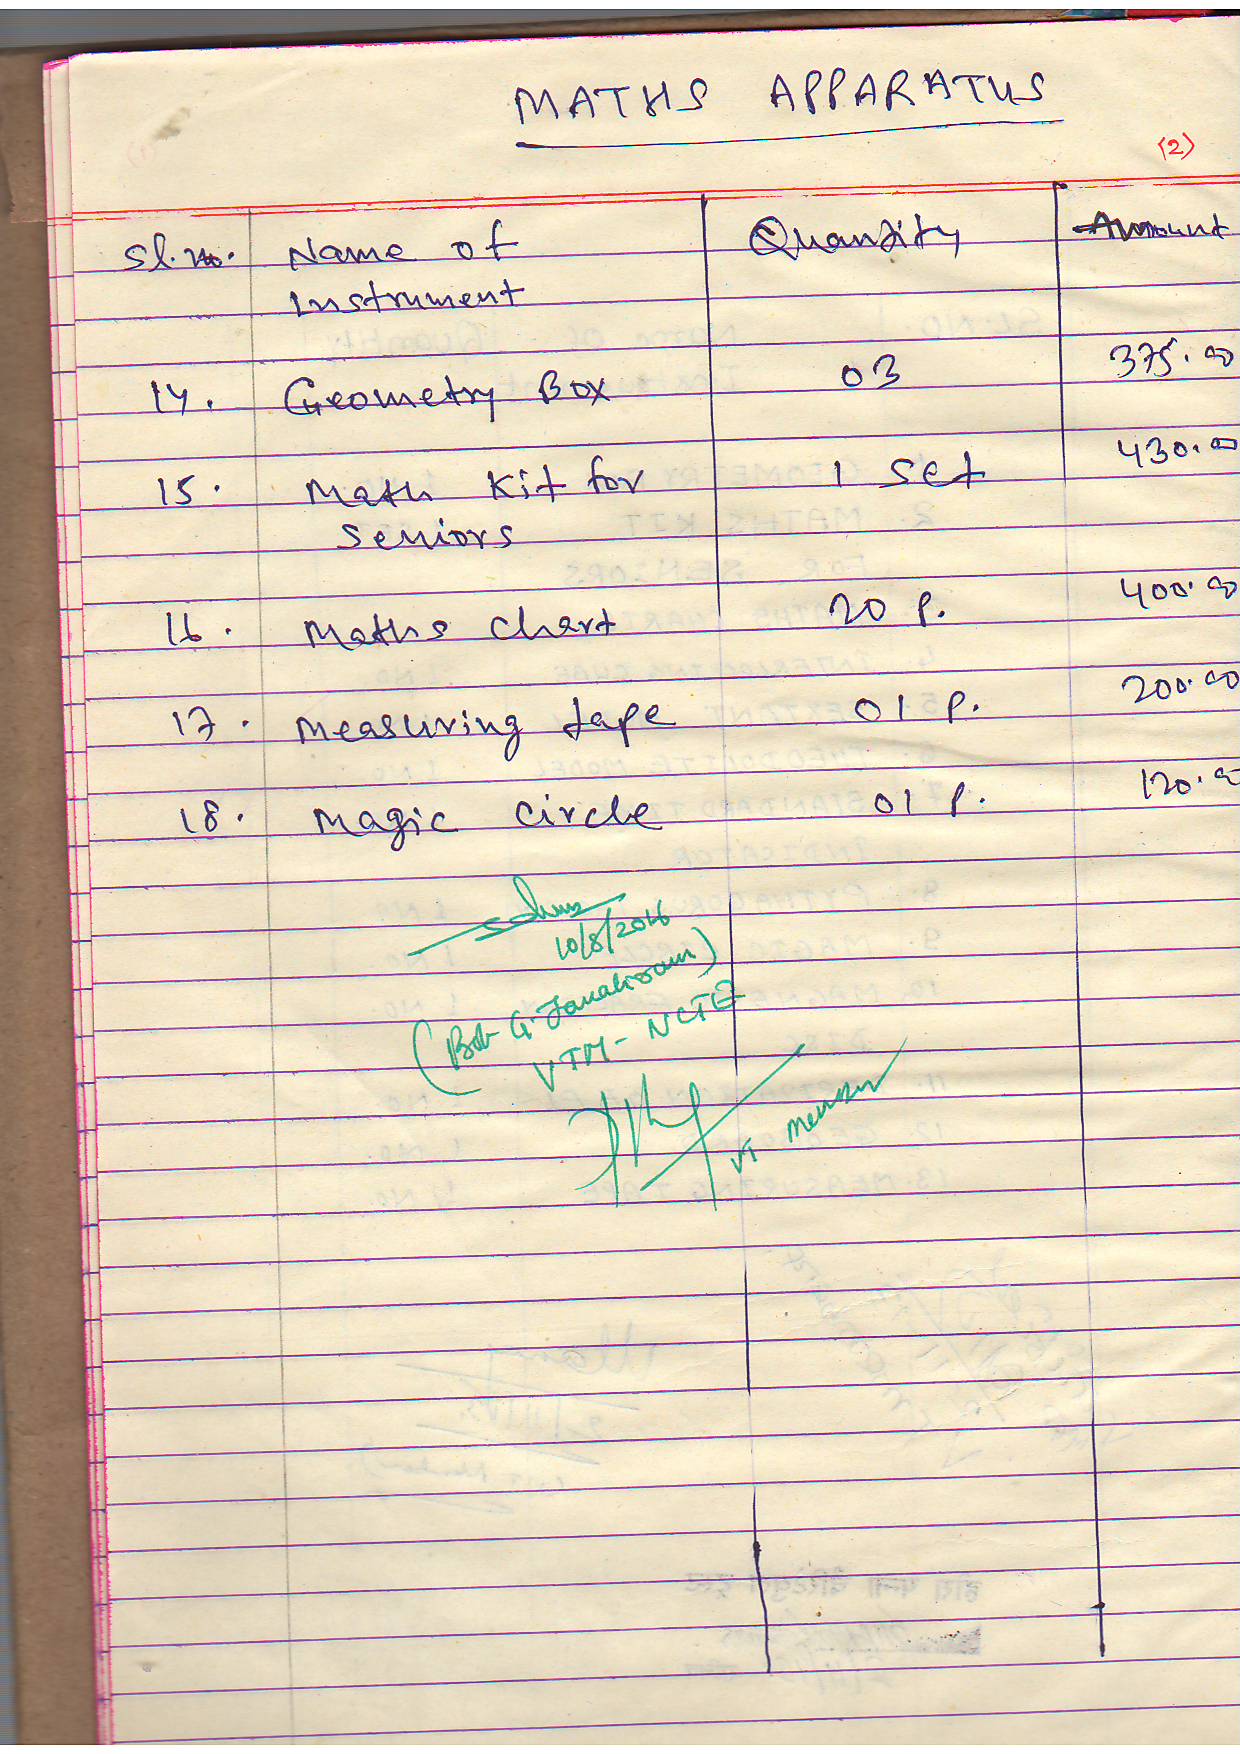 MATHS APPARATUS
(2)
Sl.no. Name of Instrument Quantity Amount
14. Geometry Box 03 375.00
15. Math Kit for Seniors 1 Set 430.00
16. Maths Chart 20 P. 400.00
17. Measuring tape 01 P. 200.00
18. Magic Circle 01 P. 120.0
10/8/2016
G. Janakiram)
VTM - NCTE
VT Member